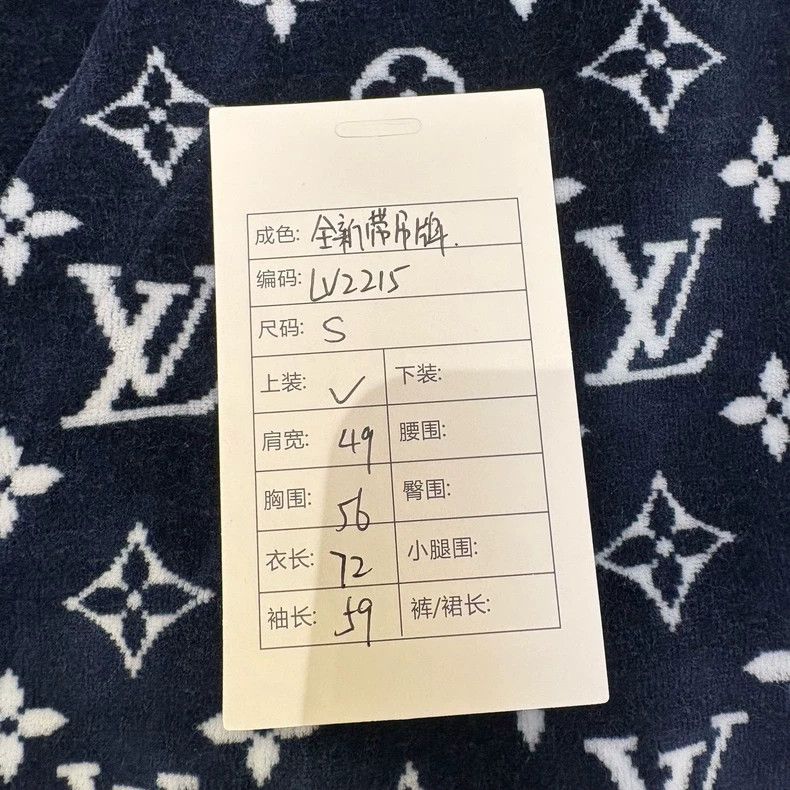 成色: 全新带吊牌.
编码: LV2215
尺码: S
上装: ✓ 下装:
肩宽: 49 腰围:
胸围: 56 臀围:
衣长: 72 小腿围:
袖长: 59 裤/裙长:
LV
LV
LV
LV